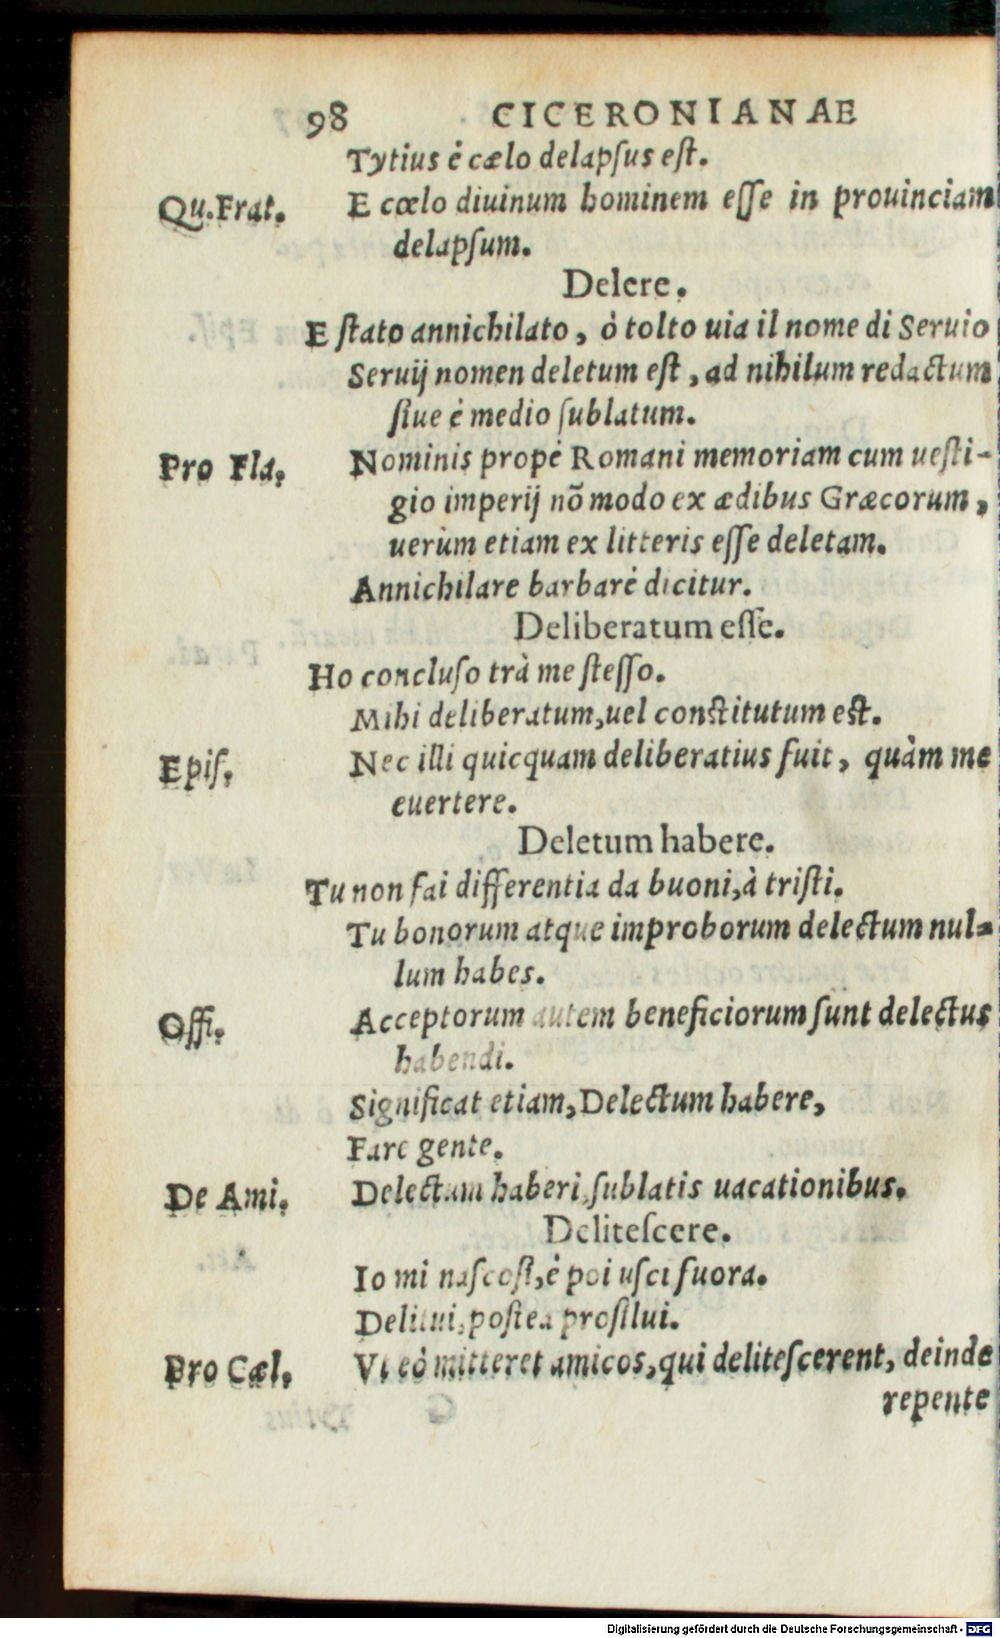 98 CICERONIANAE
Tytius è cælo delapſus eſt.
Qu.Frat. E cœlo diuinum hominem eſſe in prouinciam
delapſum.
Delere.
E ſtato annichilato, ò tolto uia il nome di Seruio
Seruij nomen deletum eſt, ad nihilum redactum
ſiue è medio ſublatum.
Pro Fla. Nominis propè Romani memoriam cum ueſti-
gio imperij nõ modo ex ædibus Græcorum,
uerùm etiam ex litteris eſſe deletam.
Annichilare barbarè dicitur.
Deliberatum eſſe.
Ho concluſo trà me ſteſſo.
Mihi deliberatum,uel conſtitutum eſt.
Epiſ. Nec illi quicquam deliberatius fuit, quàm me
euertere.
Deletum habere.
Tu non fai differentia da buoni,à triſti.
Tu bonorum atque improborum delectum nul-
lum habes.
Offi. Acceptorum autem beneficiorum ſunt delectus
habendi.
Significat etiam,Delectum habere,
Fare gente.
De Ami. Delectum haberi,ſublatis uacationibus.
Deliteſcere.
Io mi naſcoſi,è poi uſci fuora.
Delitui,poſtea proſilui.
Pro Cæl. Vt eò mitteret amicos,qui deliteſcerent, deinde
repente
Digitalisierung gefördert durch die Deutsche Forschungsgemeinschaft - DFG